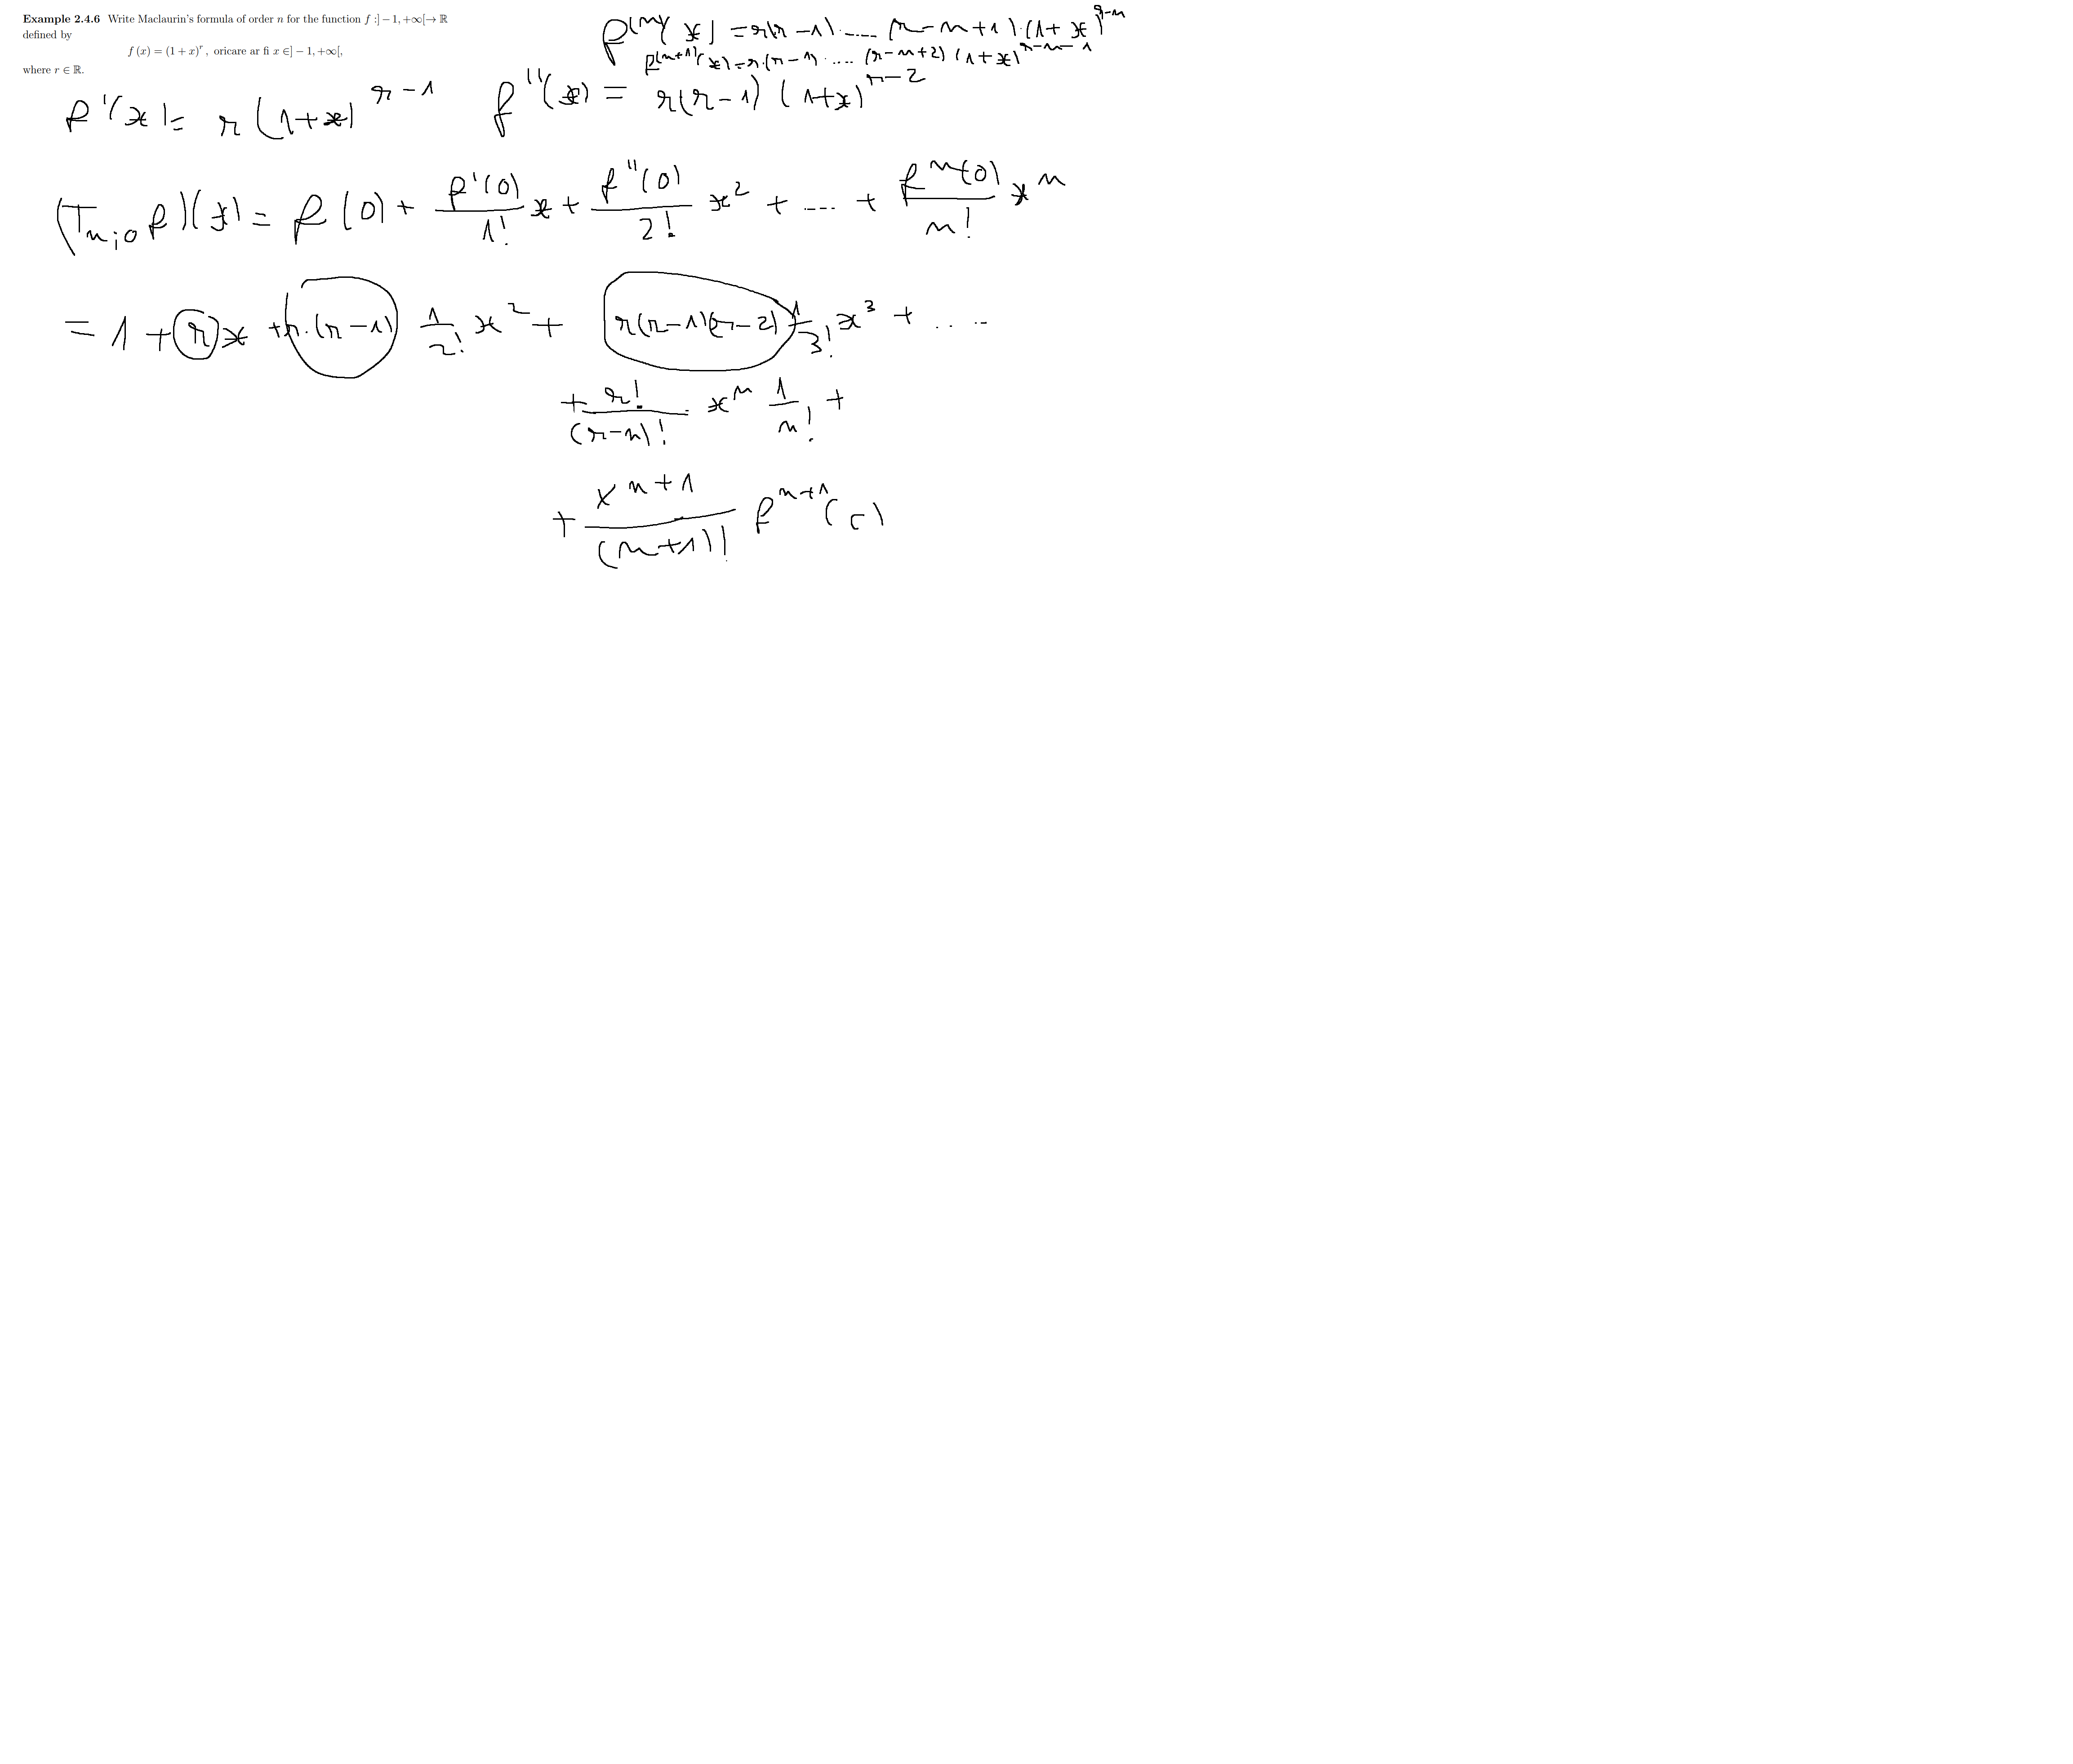 Example 2.4.6 Write Maclaurin's formula of order n for the function f :] − 1, +∞[→ ℝ
defined by
f (x) = (1 + x)^r , oricare ar fi x ∈] − 1, +∞[,
where r ∈ ℝ.
f^(n)(x) = r(r-1)·.....(r-n+1)·(1+x)^(r-n)
f^(n+1)(x) = r·(r-1)·....(r-n+2)(1+x)^(r-n-1)
f'(x) = r(1+x)^(r-1) f''(x) = r(r-1)(1+x)^(r-2)
(T_n;0 f)(x) = f(0) + f'(0)/1! x + f''(0)/2! x^2 + .... + f^n(0)/n! x^n
= 1 + r x + r·(r-1) 1/2! x^2 + r(r-1)(r-2) 1/3! x^3 + ....
+ r!/(r-n)! x^n 1/n! +
+ x^(n+1)/(n+1)! f^(n+1)(c)